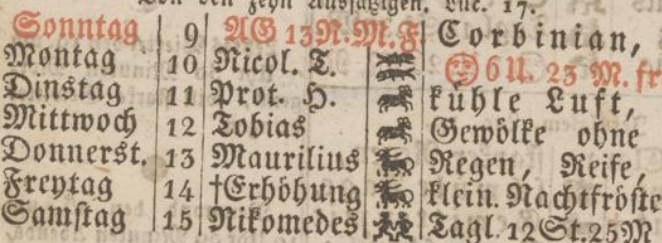 Von den zehn Aussätzigen. Luc. 17.
Sonntag 9 AG 13N.M.F Corbinian,
Montag 10 Nicol. T. 6 U. 23 M. fr
Dinstag 11 Prot. H. kühle Luft,
Mittwoch 12 Tobias Gewölke ohne
Donnerst. 13 Maurilius Regen, Reife,
Freytag 14 †Erhöhung klein. Nachtfröste
Samstag 15 Nikomedes Tagl. 12 St. 25 M